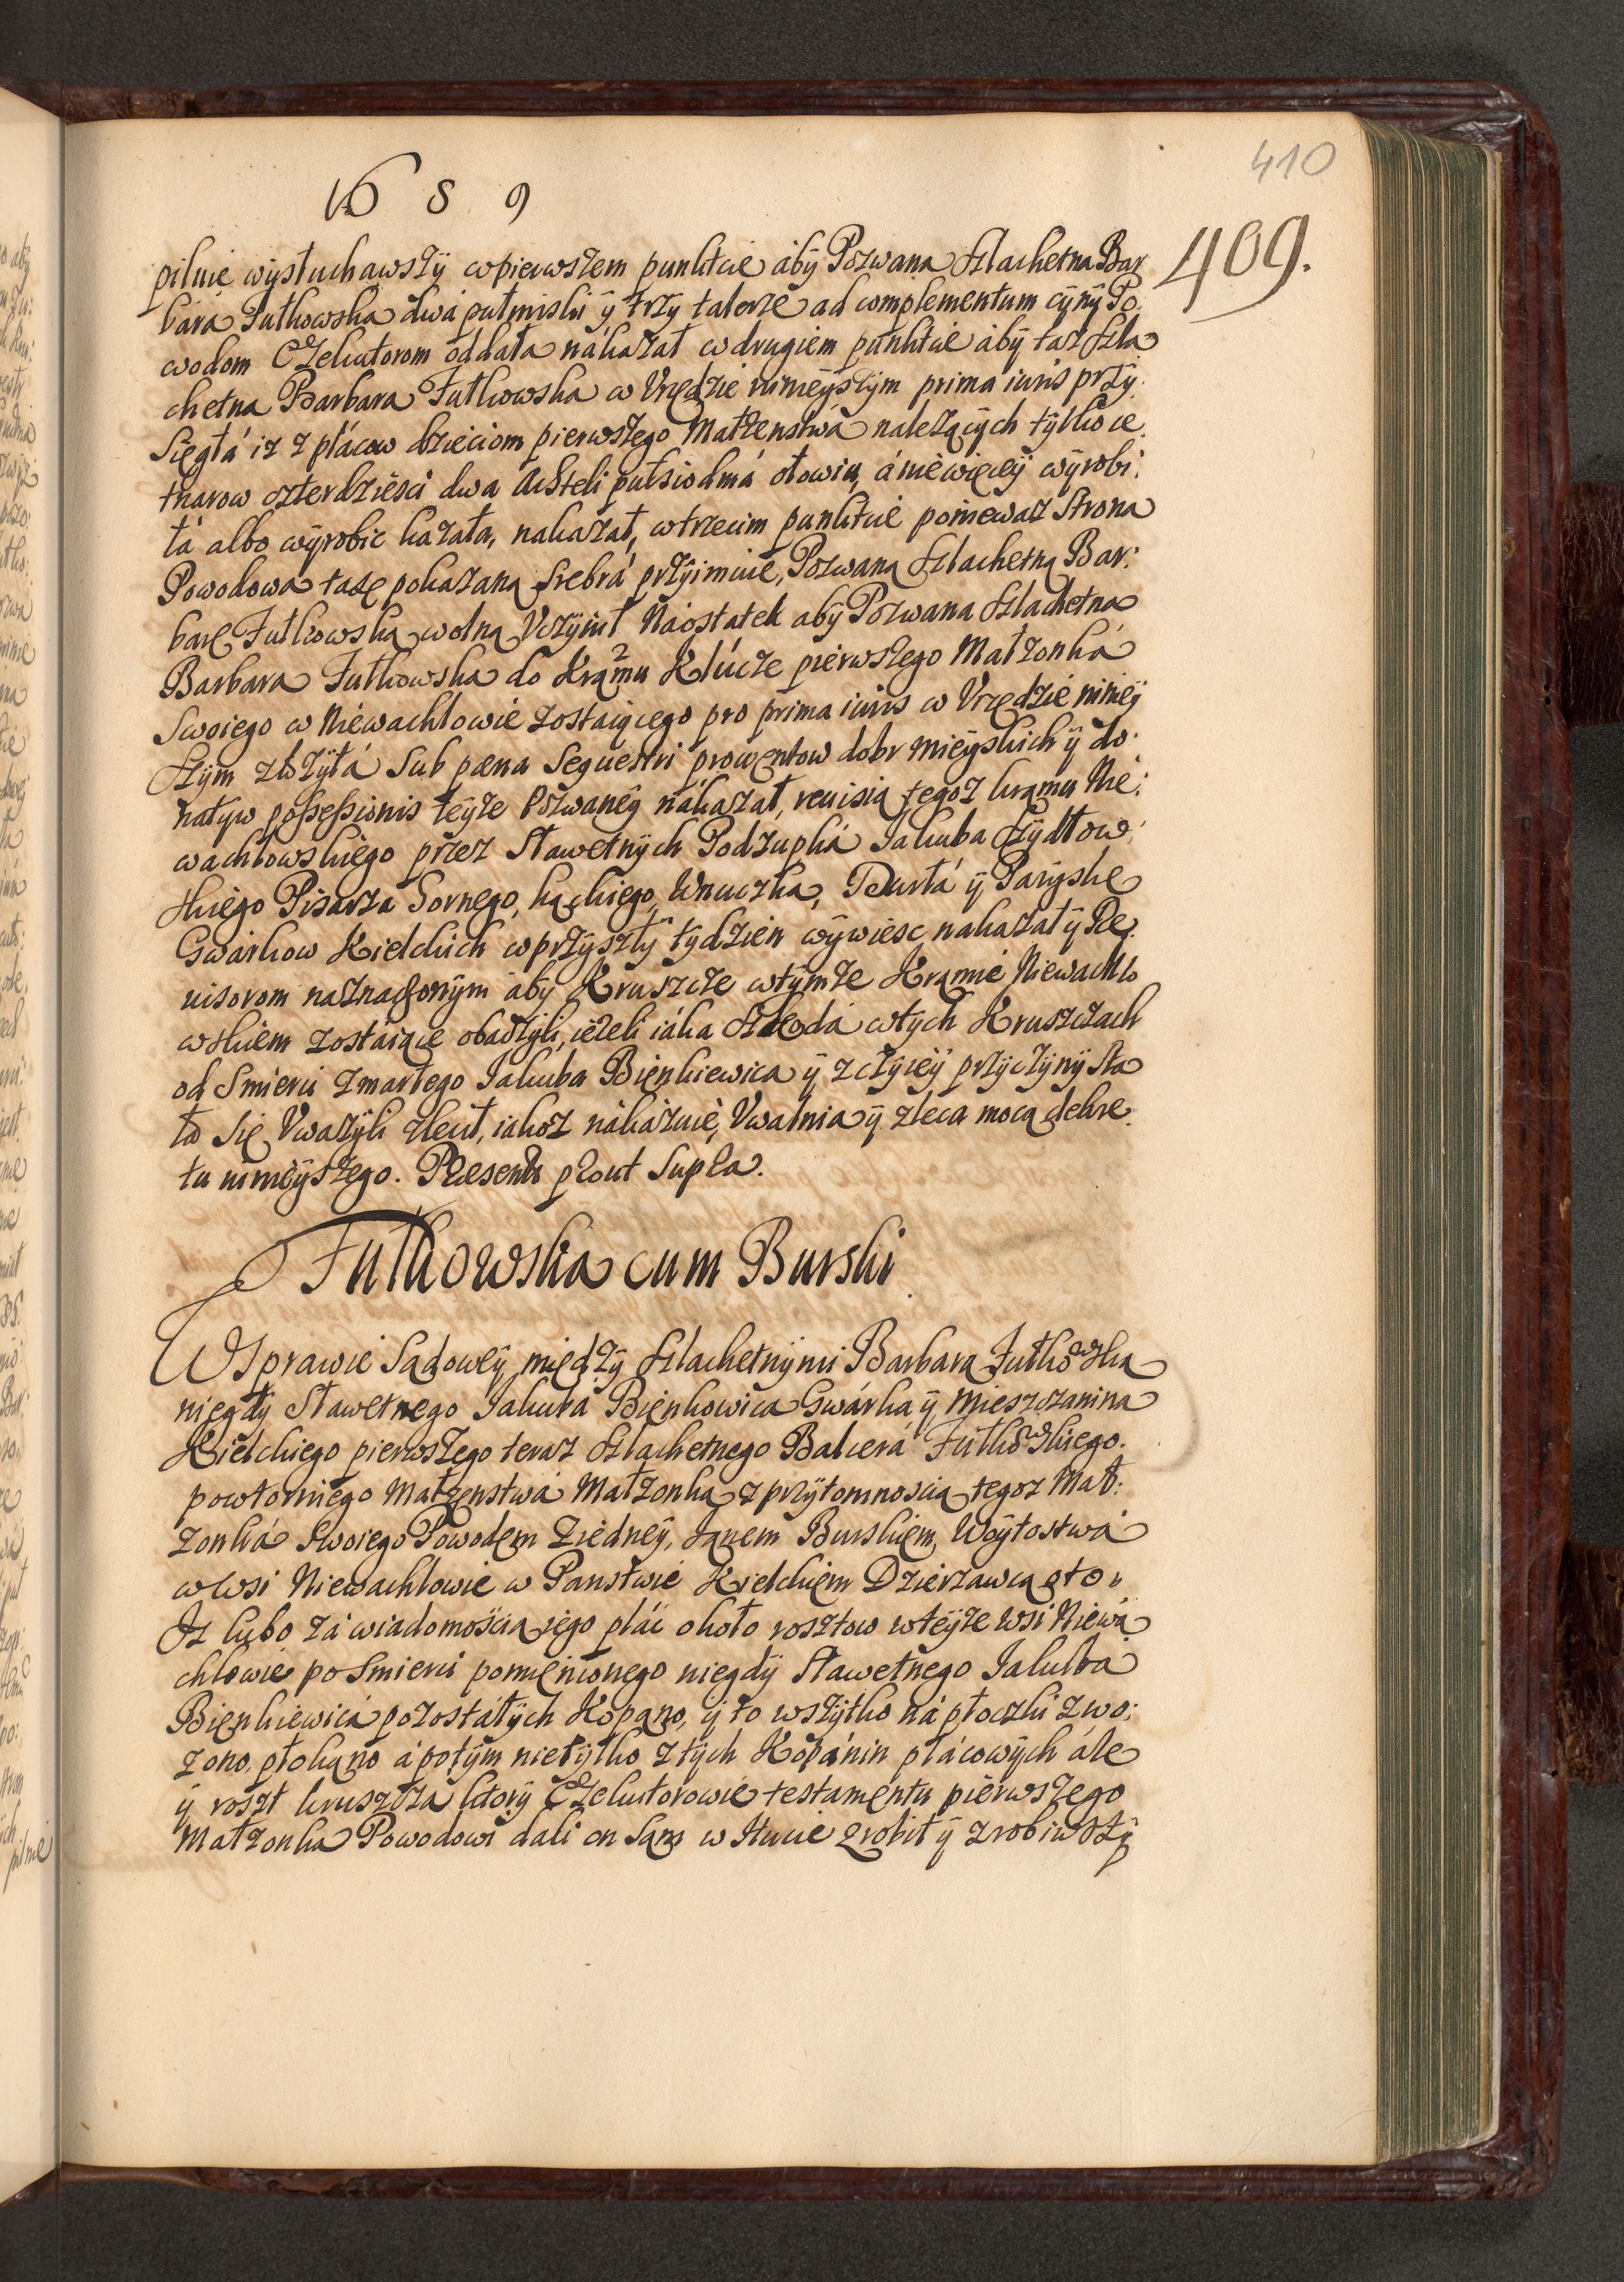 410
1689
409.
pilnie wysłuchawszÿ w pierwszem punktcie abÿ Pozwana Szlachetna Bar
bara Futkowska dwa putmiski ÿ trzy talerze ad complementum cÿnÿ Po:
wodom Exekutorom oddała nákazał w drugiem punktcie abÿ taż Szla
chetna Barbara Futkowska w Vrzędzie ninieÿszÿm prima iuris przÿ:
sięgłá iż z płáców dzieciom pierwszego Małżenstwá należących tÿlko ce:
tnarow czterdzieści dwa Achteli pułsiodmá ołowiu, á niewięceÿ wÿrobi:
łá albo wÿrobic kazała, nakazał, w trzecim punktcie poniewasz Strona
Powodowa tasę pokazaną srebrá przÿimuie, Pozwaną Szlachetną Bar:
barę Futkowską wolną Vczÿnił Náostatek abÿ Pozwana Szlachetna
Barbara Futkowska do Kramu 2 Klucze pierwszego Małżonká
Swoiego w Niewachlowie zostaiącego pro prima iuris w Vrzędzie niniéÿ
szÿm złożÿłá sub pæna Sequestri prowentow dobr mieÿskich ÿ do:
natyw possessionis teÿże Pozwaneÿ nákazał, reuisią tegoż kramu Nie:
wachlowskiego przez Sławetnÿch Podżupká Jakuba Szÿdłow:
skiego Pisarza Gornego, kąckiego, Wnuczka, Burłá ÿ Parÿskę
Gwárkow Kielckich w przÿszłÿ tÿdzien wÿwiesc nakazał ÿ Re:
uisorom naznaczonÿm abÿ Kruszcze w tÿmże Kramie Niewachlo
wskiem zostáiące obaczÿli, ieżeli iáka szkodá w tÿch Kruszczach
od smierci zmarłego Jakuba Bienkiewica ÿ z czÿieÿ przÿczÿnÿ sta
ła się Vważÿli zlecił, iakoż nákazuie, Vwalnia ÿ zleca mocą dekre:
tu ninieÿszego. Præsentibus prout Supra.
Futkowska cum Burski
W Sprawie Sądoweÿ międzÿ Szlachetnÿmi Barbarą Futkowską
niegdÿ Sławetnego Jakubá Bienkowica Gwárka ÿ Mieszczanina
Kielckiego pierwszego teraz Szlachetnego Balcerá Futkowskiego
powtornego Małżenstwá Małżonką z przÿtomnoscią tegoż Mał:
żonká Swoiego Powodem z iedneÿ, Janem Burskiem, Woÿtostwá
w Wsi Niewachlowie w Panstwie Kielckiem Dzierzawcą oto.
Iż lubo zá wiadomoscią iego płác około rosztow w teÿże Wsi Niewa
chlowie po smierci pomienionego niegdÿ Sławetnego Jakuba
Bienkiewicá pozostáłÿch Kopano, ÿ to wszÿtko ná płoczki zwo:
żono, płokano á potÿm nietÿlko z tÿch Kopánin płácowÿch ále
ÿ roszt kruszcza ktorÿ Exekutorowie testamentu pierwszego
Małżonka Powodowi dali on Sam w Hucie zrobił ÿ zrobiwszÿ